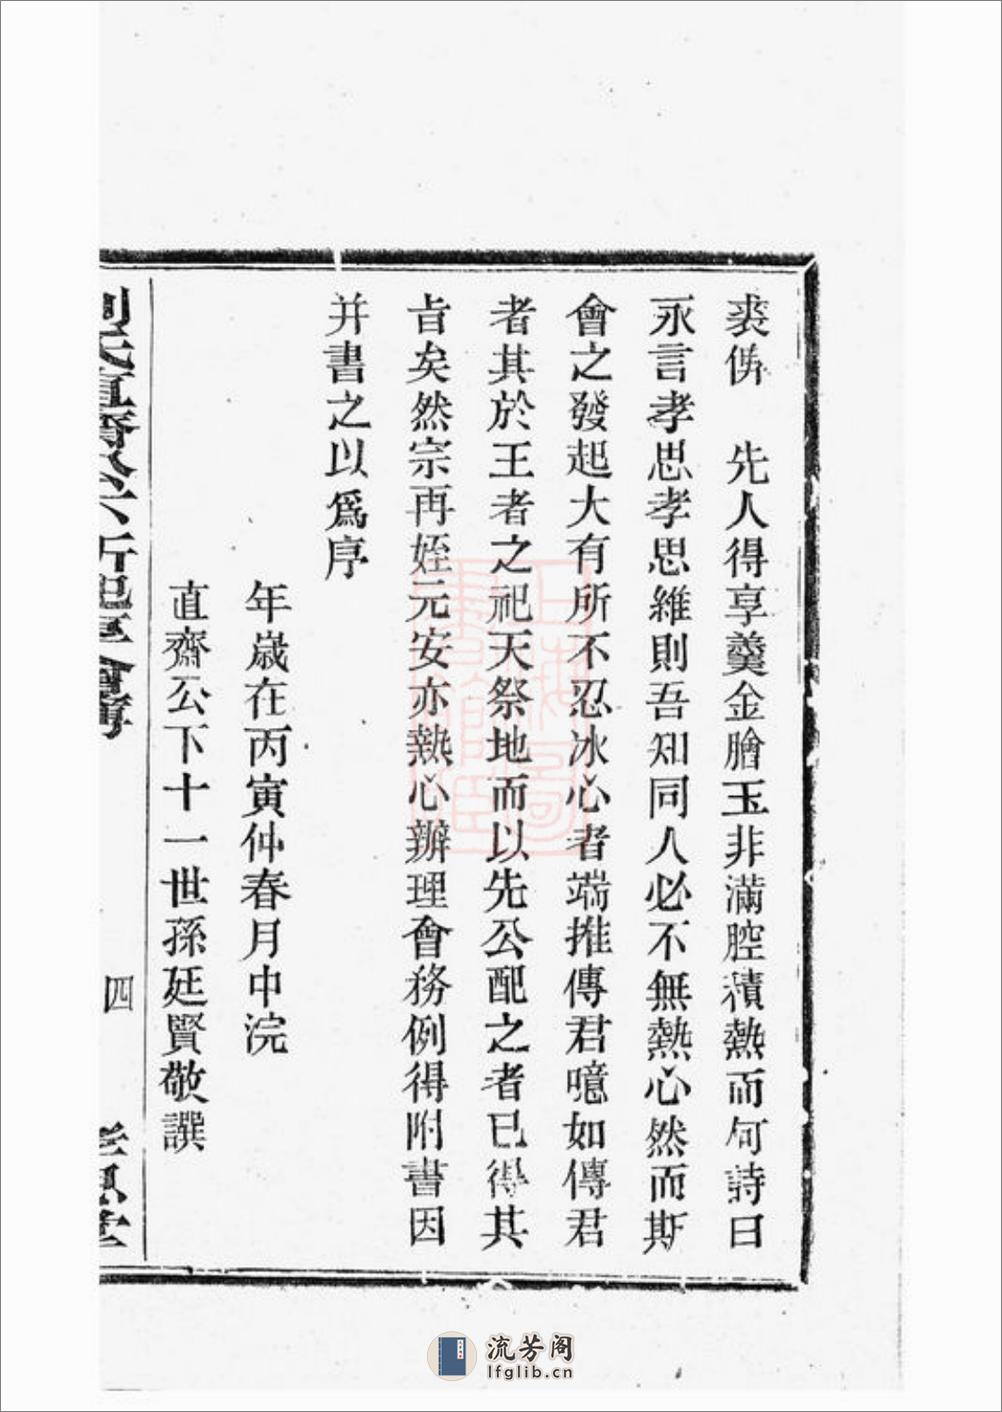 裘俾　先人得享羹金膾玉非滿腔積熱而何詩曰
永言孝思孝思維則吾知同人必不無熱心然而斯
會之發起大有所不忍冰心者端推傳君噫如傳君
者其於王者之祀天祭地而以先公配之者已得其
旨矣然宗再姪元安亦熱心辦理會務例得附書因
并書之以爲序
年歲在丙寅仲春月中浣
直齋公下十一世孫廷賢敬譔
四
孝思堂
上海圖書館藏
流芳阁
lfglib.cn